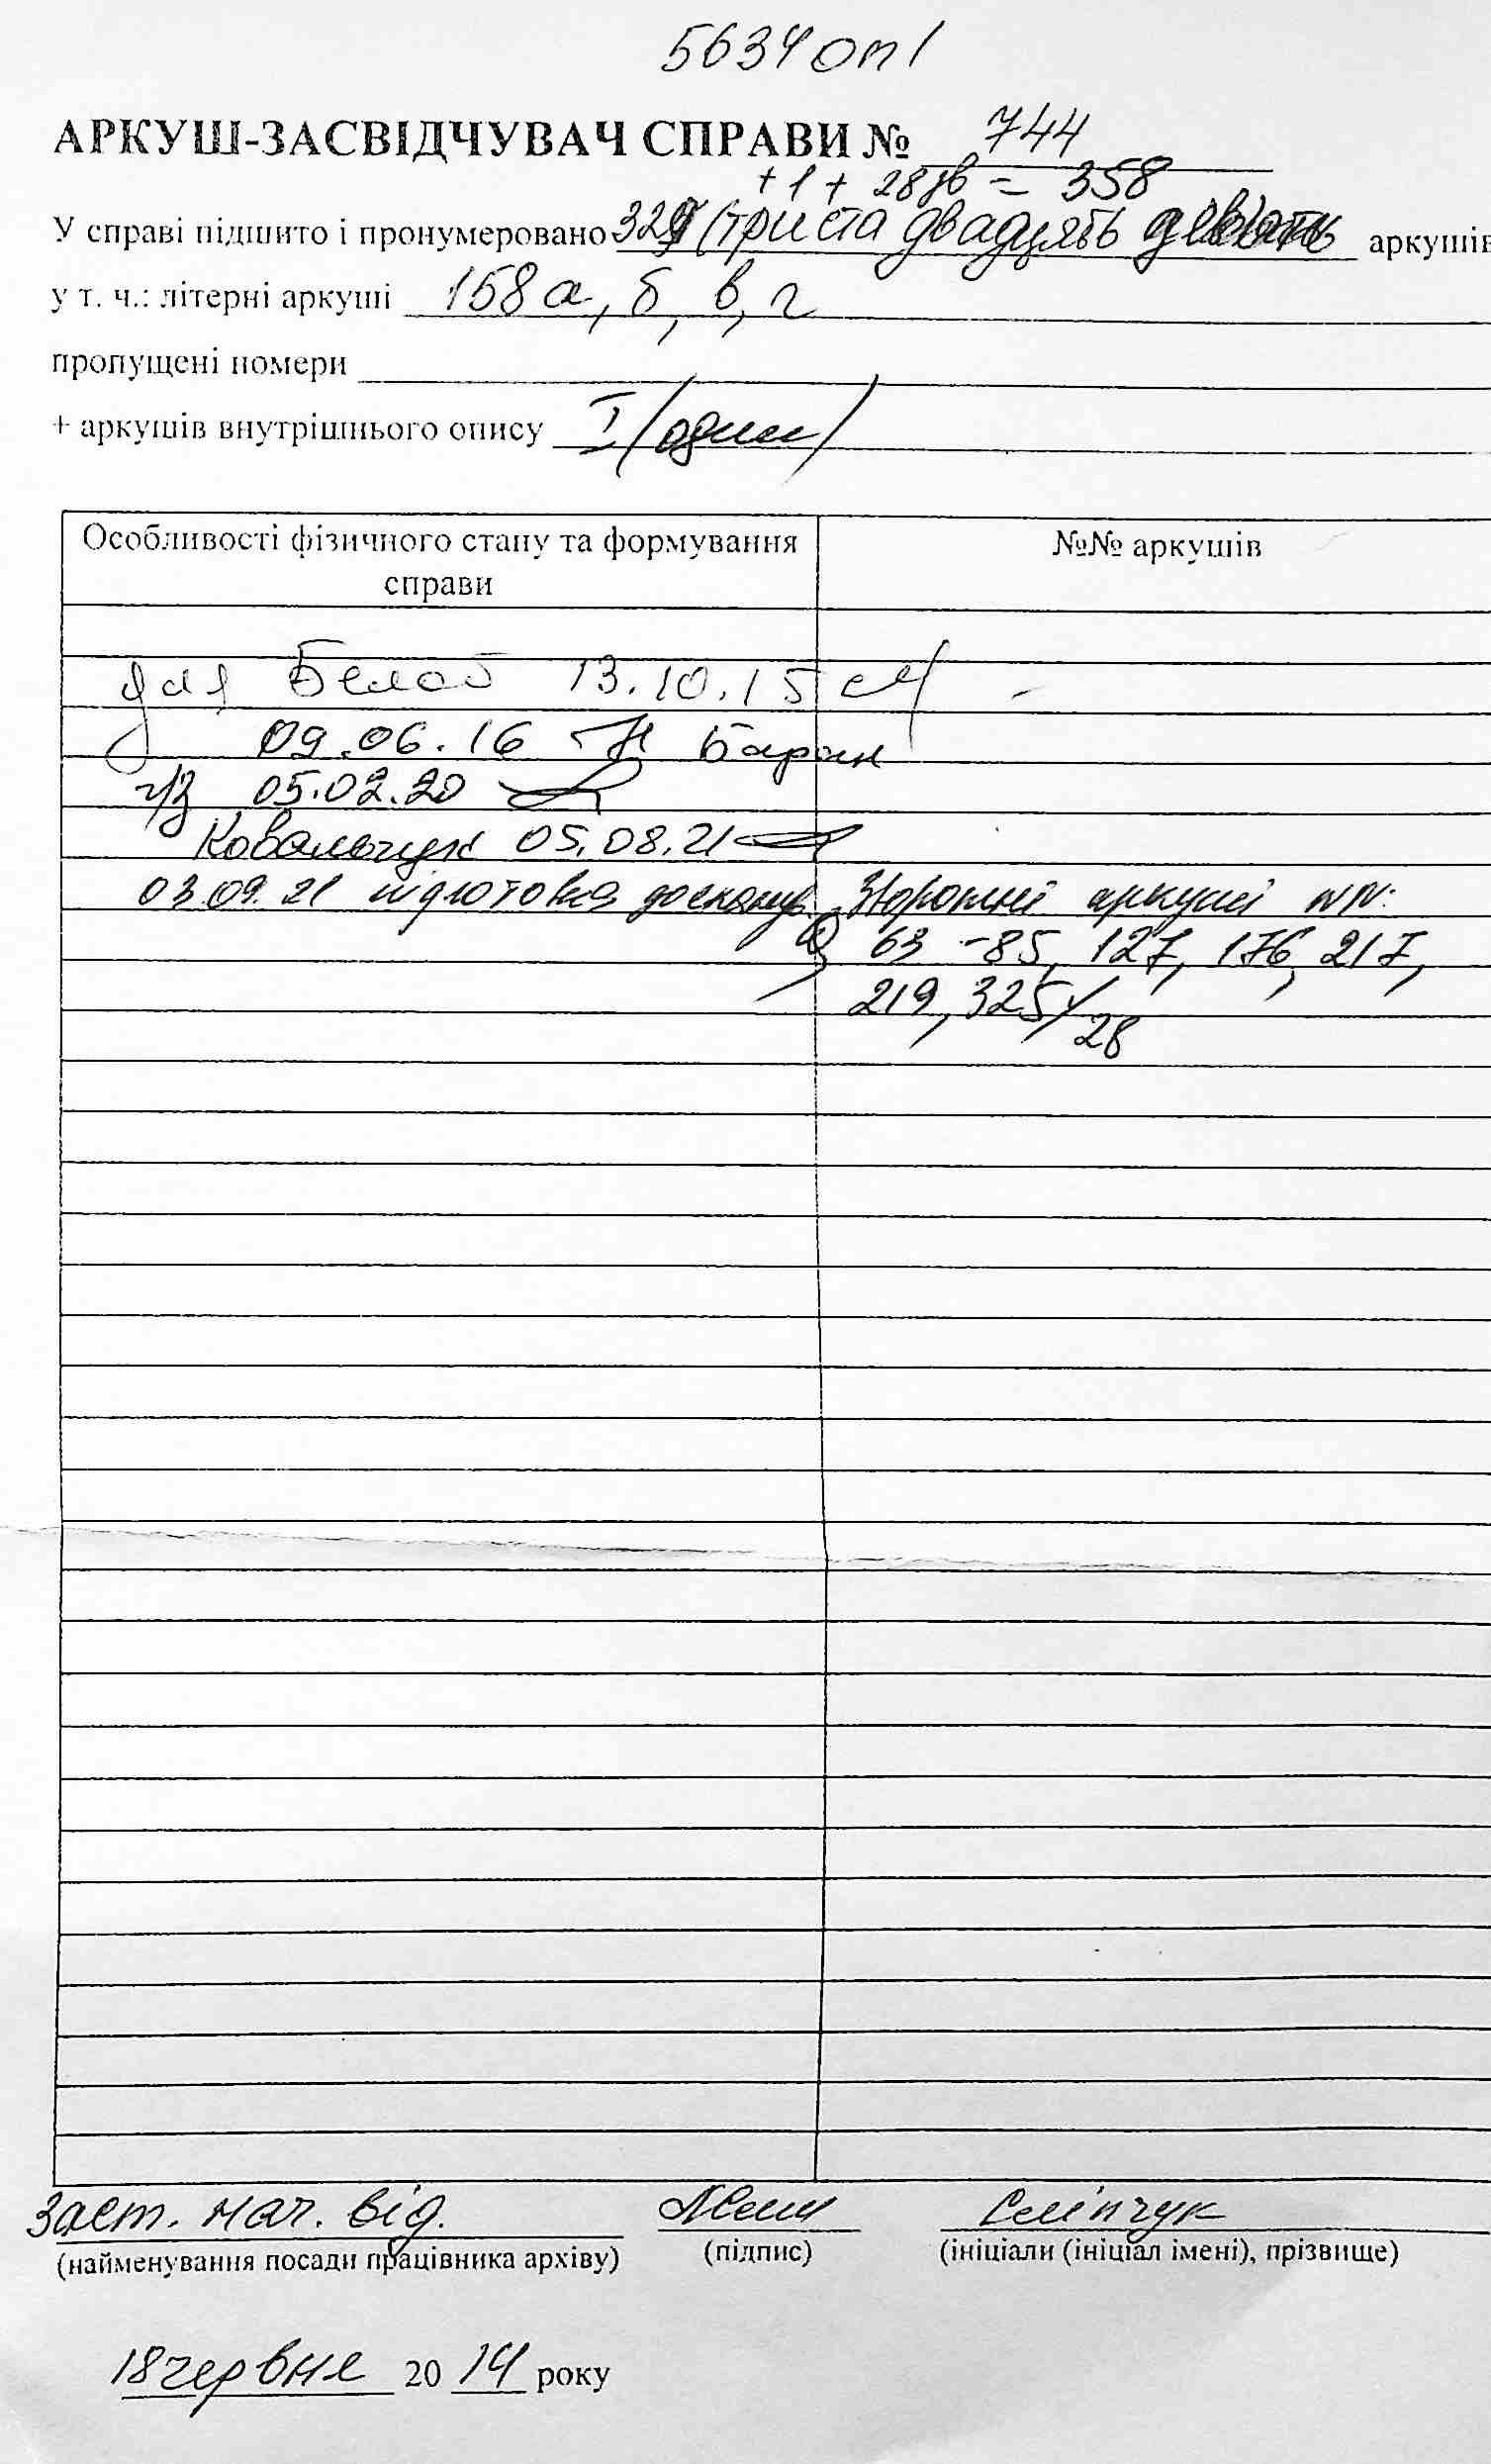 5634 оп 1
АРКУШ-ЗАСВІДЧУВАЧ СПРАВИ № 744
+ 1 + 28 зв = 358
У справі підшито і пронумеровано 329 (триста двадцять дев'ять аркушів
у т. ч.: літерні аркуші 158 а, б, в, г
пропущені номери
+ аркушів внутрішнього опису I (один)
Особливості фізичного стану та формування справи
№№ аркушів
для Белой 13.10.15
09.06.16 Баран
ч/з 05.02.20
Ковальчук 05.08.21
03.09.21 підготовка до сканув. Зворотні аркуші NN:
63 - 85, 127, 176, 217,
219, 325 / 28
Заст. нач. від. Сліпчук
(найменування посади працівника архіву) (підпис) (ініціали (ініціал імені), прізвище)
18 червня 20 14 року